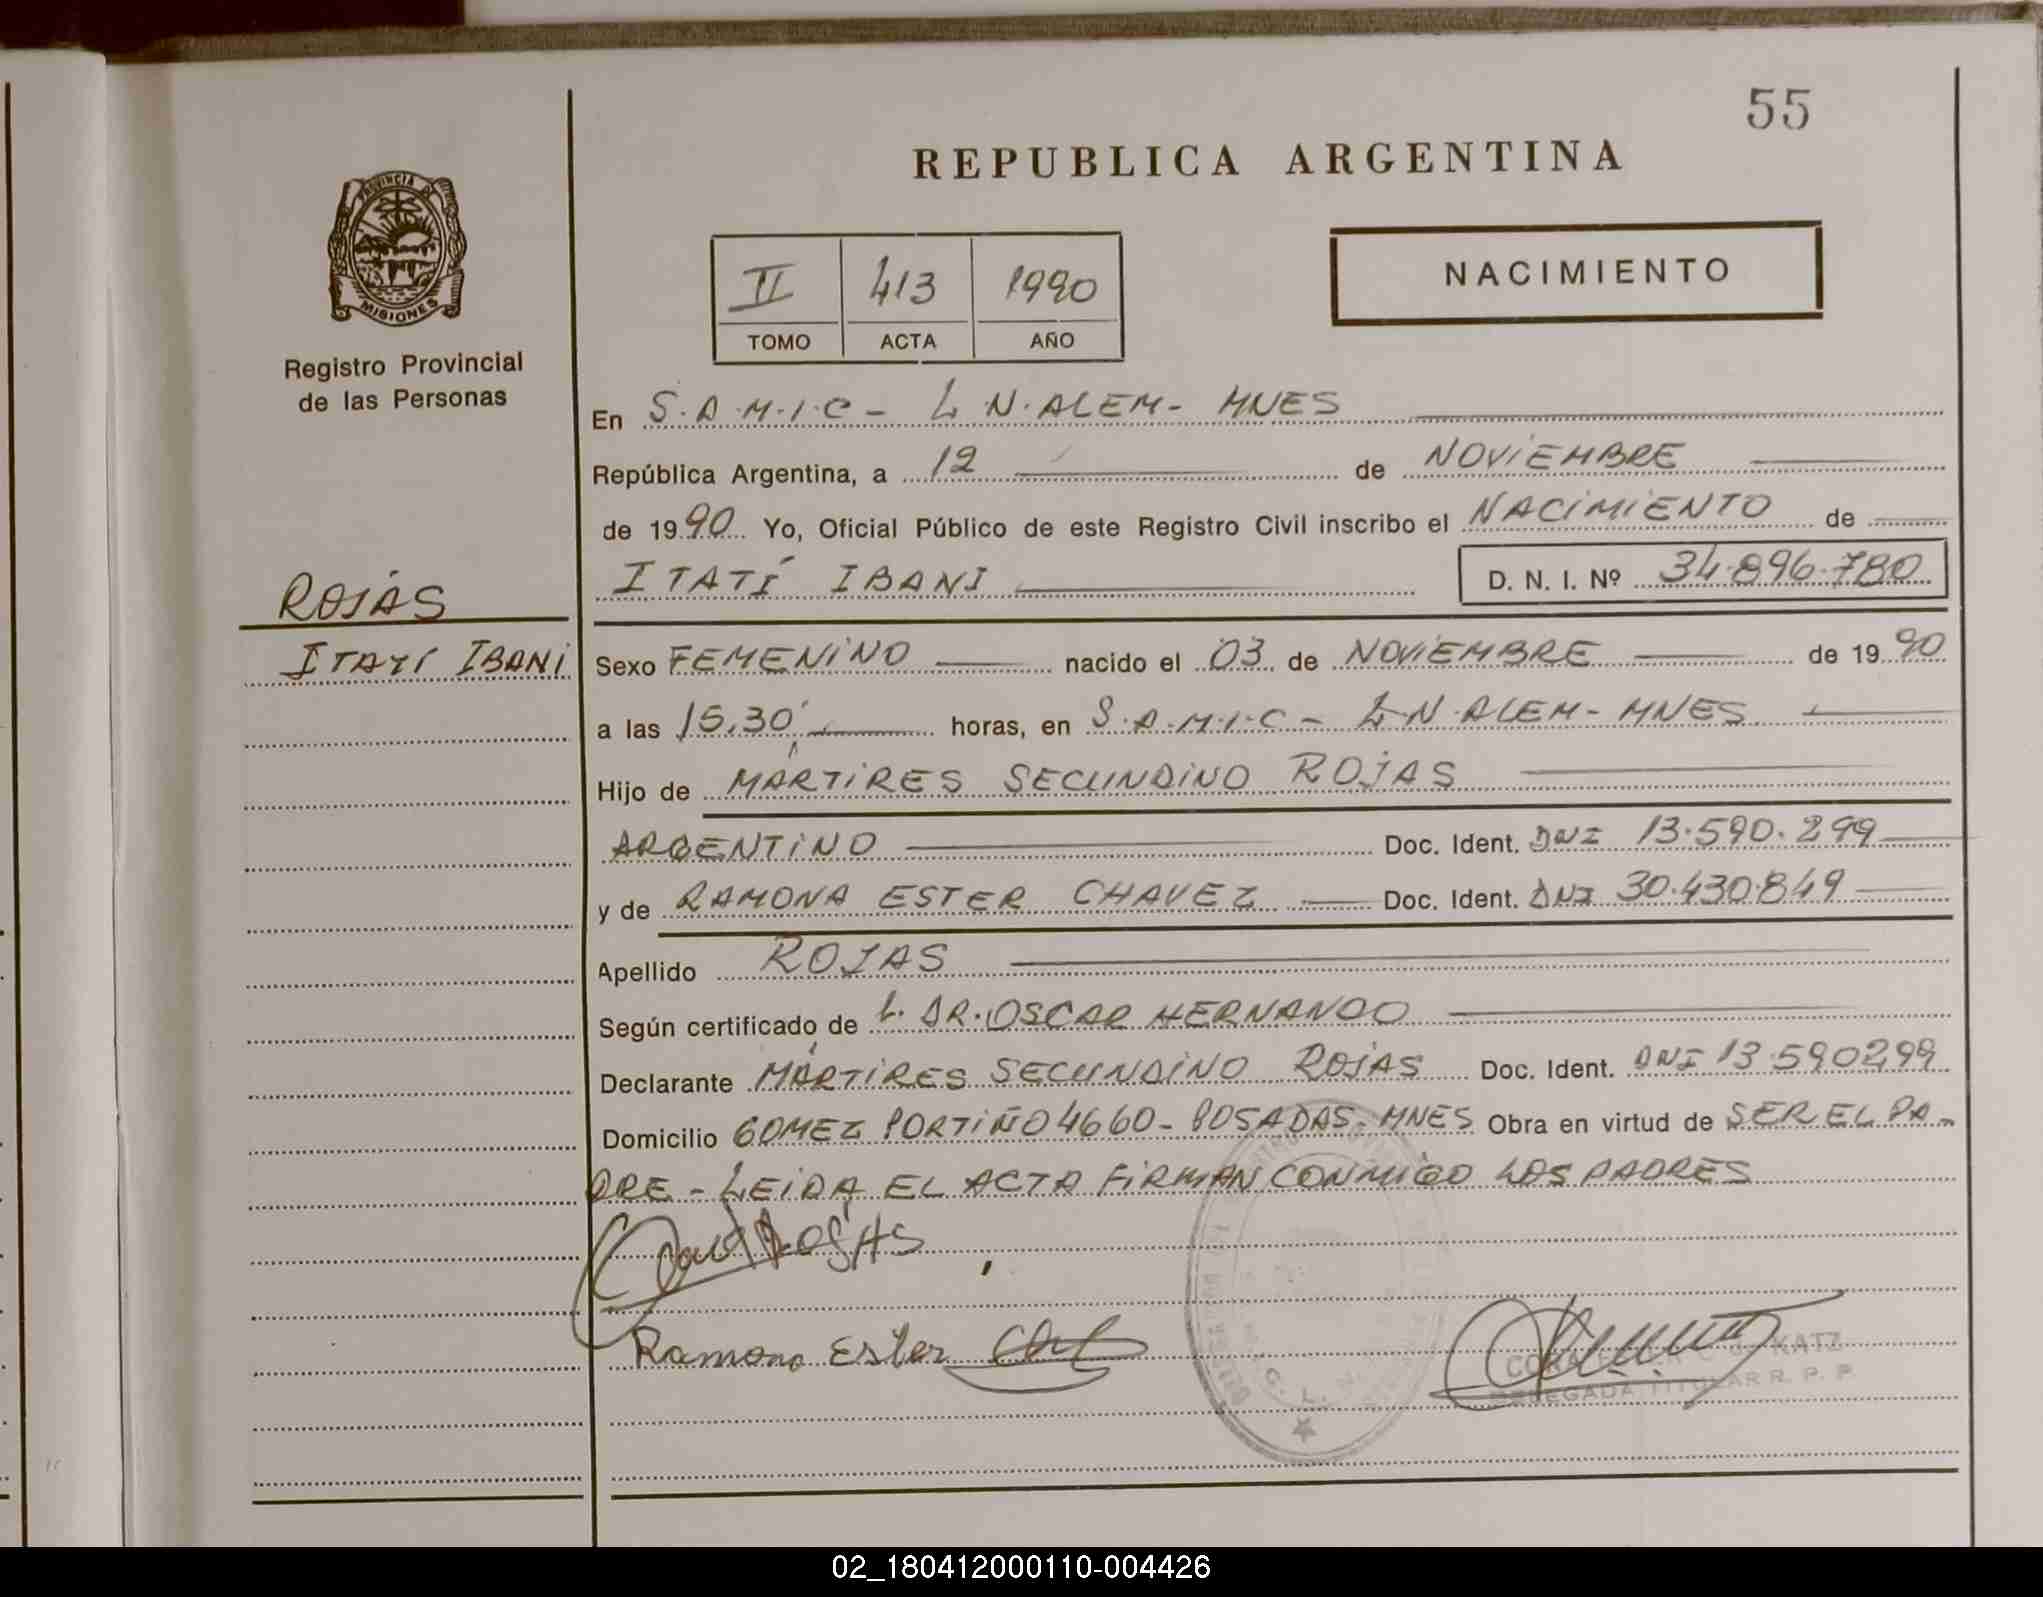 55
REPUBLICA ARGENTINA
PROVINCIA DE
MISIONES
Registro Provincial
de las Personas
II 413 1990
TOMO ACTA AÑO
NACIMIENTO
En S.A.M.I.C - L.N.ALEM - MNES
República Argentina, a 12 de NOVIEMBRE
de 1990 Yo, Oficial Público de este Registro Civil inscribo el NACIMIENTO de
ITATÍ IBANI D. N. I. Nº 34.896.780
ROJAS
ITATÍ IBANI
Sexo FEMENINO nacido el 03 de NOVIEMBRE de 1990
a las 15,30' horas, en S.A.M.I.C - L.N.ALEM - MNES
Hijo de MÁRTIRES SECUNDINO ROJAS
ARGENTINO Doc. Ident. DNI 13.590.299
y de RAMONA ESTER CHAVEZ Doc. Ident. DNI 30.430.849
Apellido ROJAS
Según certificado de L. DR. OSCAR HERNANDO
Declarante MÁRTIRES SECUNDINO ROJAS Doc. Ident. DNI 13.590299
Domicilio GOMEZ PORTIÑO 4660 - POSADAS - MNES Obra en virtud de SER EL PA-
DRE - LEIDA EL ACTA FIRMAN CONMIGO LOS PADRES
ROJAS
Ramona Ester
KATZ
DELEGADA TITULAR R. P. P.
02_180412000110-004426